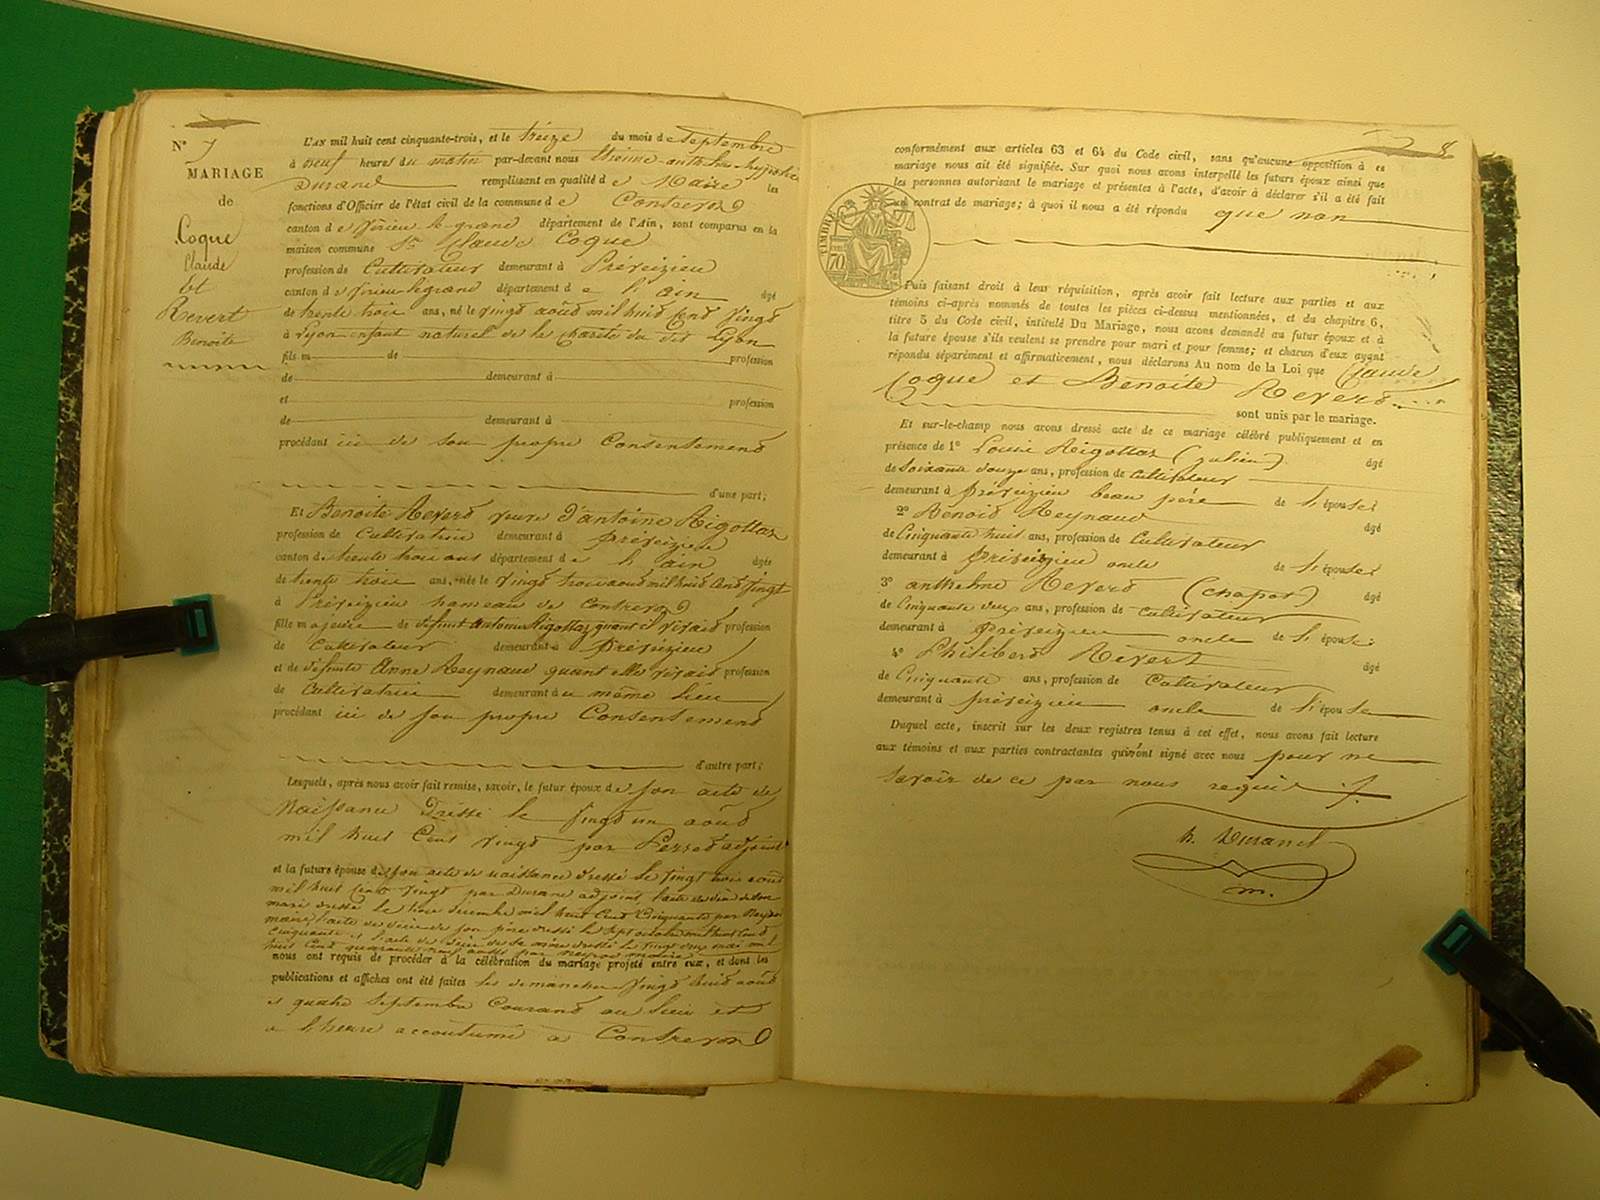 N° 7
MARIAGE
de
Coque
Claude
Et
Revert
Benoite
L'AN mil huit cent cinquante-trois, et le treize du mois de Septembre
à neuf heures du matin par-devant nous Etienne anthelme hyppolite
Durand remplissant en qualité de Maire les
fonctions d'Officier de l'état civil de la commune de Contrevoz
canton de Virieu le grand département de l'Ain, sont comparus en la
maison commune Sr Claude Coque
profession de Cultivateur demeurant à Préveizieu
canton de Virieu-legrand département de l'ain âgé
de trente trois ans, né le vingt aoûd mil huid Cend vingd
à Lyon enfant naturel de la Charité du dit Lyon
fils m de profession
de demeurant à
et profession
de demeurant à
procédant ici de son propre Consentemend
d'une part;
Et Benoite Reverd veuve d'antoine Rigollaz
profession de Cultivatrice demeurant à préveizieu
canton de trente trois ans département de l'ain âgée
de trente trois ans, née le vingd trois aoud mil huid Cend vingt
à Préveizieu hameau de Contrevoz
fille majeure de défunt antoine Rigollaz quand il vivaid profession
de Cultivateur demeurant à Préveizieu
et de défunte Anne Reynaud quant elle vivaid profession
de Cultivatrice demeurant au même lieu
procédant ici de son propre Consentemend
d'autre part;
Lesquels, après nous avoir fait remise, savoir, le futur époux de son acte de
Naissance Dressé le Vingd un aoûd
mil huit Cent vingd par Perred adjoint
et la future épouse de son acte de naissance dressé le vingt trois aoud
mil huit Cent vingt par Durand adjoint, l'acte de décès de son
mari dressé le onze décembre mil huit Cend Cinquante par
maire, l'acte de décès de son père dressé le sept octobre mil huit Cend
cinquante et l'acte de décès de sa mère dressé le vingt deux mai mil
huit Cent quarante
nous ont requis de procéder à la célébration du mariage projeté entre eux, et dont les
publications et affiches ont été faites les dimanches vingt huid aoûd
et quatre Septembre Courand au lieu et
a l'heure accoutumé a Contrevoz
8
conformément aux articles 63 et 64 du Code civil, sans qu'aucune opposition à ce
mariage nous ait été signifiée. Sur quoi nous avons interpellé les futurs époux ainsi que
les personnes autorisant le mariage et présentes à l'acte, d'avoir à déclarer s'il a été fait
un contrat de mariage; à quoi il nous a été répondu que non
TIMBRE
70
Puis faisant droit à leur réquisition, après avoir fait lecture aux parties et aux
témoins ci-après nommés de toutes les pièces ci-dessus mentionnées, et du chapitre 6,
titre 5 du Code civil, intitulé Du Mariage, nous avons demandé au futur époux et à
la future épouse s'ils veulent se prendre pour mari et pour femme; et chacun d'eux ayant
répondu séparément et affirmativement, nous déclarons Au nom de la Loi que Claude
Coque et Benoite Reverd
sont unis par le mariage.
Et sur-le-champ nous avons dressé acte de ce mariage célébré publiquement et en
présence de 1° Louis Rigollaz (julien) âgé
de Soixante douze ans, profession de Cultivateur
demeurant à préveizieu beau père de l'épouse;
2° Benoid Reynaud âgé
de Cinquante huit ans, profession de Cultivateur
demeurant à préveizieu oncle de l'épouse;
3° anthelme Reverd (chapot) âgé
de Cinquante deux ans, profession de Cultivateur
demeurant à préveizieu oncle de l'épouse;
4° Philiberd Revert âgé
de Cinquante ans, profession de Cultivateur
demeurant à préveizieu oncle de l'épouse
Duquel acte, inscrit sur les deux registres tenus à cet effet, nous avons fait lecture
aux témoins et aux parties contractantes qui n'ont signé avec nous pour ne
savoir de ce par nous requis
h. Durand
m.